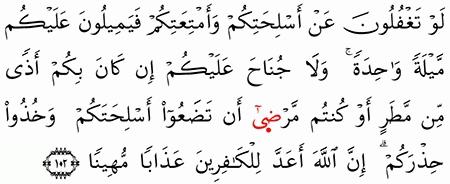 لَوْ تَغْفُلُونَ عَنْ أَسْلِحَتِكُمْ وَأَمْتِعَتِكُمْ فَيَمِيلُونَ عَلَيْكُم
مَّيْلَةً وَٰحِدَةً ۚ وَلَا جُنَاحَ عَلَيْكُمْ إِن كَانَ بِكُمْ أَذًى
مِّن مَّطَرٍ أَوْ كُنتُم مَّرْضَىٰٓ أَن تَضَعُوٓا۟ أَسْلِحَتَكُمْ ۖ وَخُذُوا۟
حِذْرَكُمْ ۗ إِنَّ ٱللَّهَ أَعَدَّ لِلْكَـٰفِرِينَ عَذَابًا مُّهِينًا ﴿١٠٢﴾